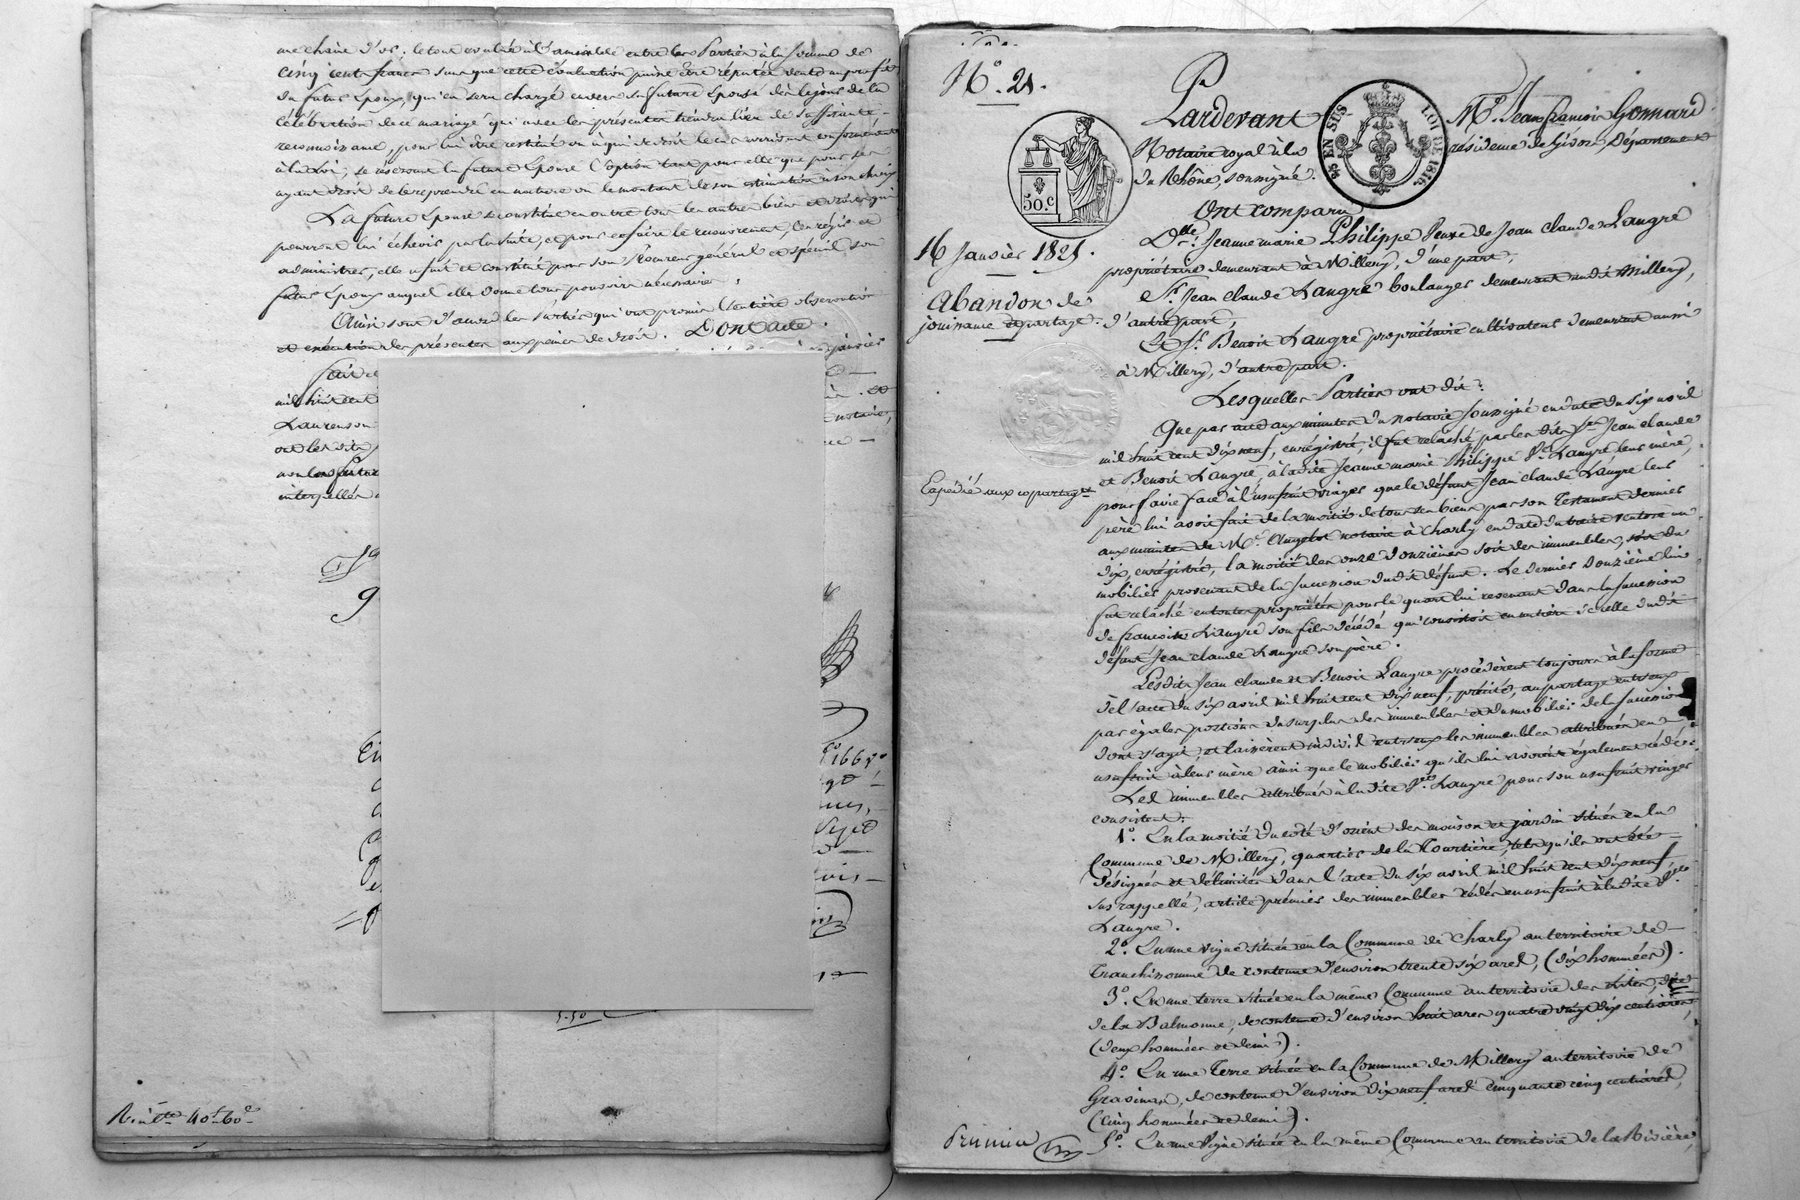 une chaine d'or. le tout évalué à l'amiable entre les Parties à la somme de
cinq cents francs sans que cette évaluation puisse être réputée vente au profit
du futur Epoux, qui en sera chargé envers sa future Epouse dès le jour de la
célébration de ce mariage qui avec les présentes tiendra lieu de suffisante
reconnaissance, pour lui être restitué ou à qui de droit le cas arrivant conformément
à la loi; se réservant la future Epouse l'option tant pour elle que pour ses
ayant droit de le reprendre en nature ou le montant de son estimation à son choix
La future Epouse se constitue en outre tous les autres biens et droits qui
pourront lui échoir par la suite, et pour en faire le recouvrement, les régir et
administrer, elle a fait et constitué pour son Procureur général et spécial son
futur Epoux auquel elle donne tous pouvoirs nécessaires.
Ainsi sont d'accord les parties qui ont promis l'entière observation
et exécution des présentes aux peines de droit. Dont acte.
Fait
janvier
mil huit cent
Laurenson
notaire,
ont les dits
non les futurs
interpellés
9
1665
5-50
Nin 40 60
N.° 21.
Pardevant M.e Jean François Gonnard
Notaire royal à la résidence de Givors, Département
du Rhône, soussigné.
50.c
95 EN SUS LOI DE 1816.
Ont comparu
16 Janvier 1821.
D.lle Jeanne marie Philippe Veuve de Jean claude Langre
propriétaire demeurant à Millery, d'une part,
S.r Jean claude Langre boulanger demeurant audit Millery,
Abandon de
jouissance et partage.
d'autre part,
Et S.r Benoit Langre propriétaire cultivateur demeurant aussi
à Millery, d'autre part.
Lesquelles Parties ont dit:
Que par acte aux minutes du notaire soussigné en date du six avril
mil huit cent dix neuf, enrégistré, il fut relâché par les dits S.rs Jean claude
et Benoit Langre à la dite Jeanne marie Philippe V.e Langre leur mère,
Expédié aux copartag.ts
pour faire face à l'usufruit viager que le défunt Jean claude Langre leur
père lui avoit fait de la moitié de tous ses biens par son Testament dernier
aux minutes de M.e notaire à Charly en date du treize ventose an
dix, enrégistré, la moitié des onze douzièmes soit des immeubles, soit du
mobilier provenant de la succession dudit défunt. Le dernier douzième lui
fut relâché en toutes propriétés pour le quart lui revenant dans la succession
de françois Langre son fils décédé qui consistoit en entière icelle dudit
défunt Jean claude Langre son père.
Lesdits Jean claude et Benoit Langre procédèrent toujours à la forme
de l'acte du six avril mil huit cent dix neuf, précité, au partage entr'eux
par égales portions du surplus des immeubles et du mobilier de la succession
dont s'agit, et laissèrent indivis entr'eux les immeubles attribués en
usufruit à leur mère ainsi que le mobilier qu'ils lui avoient également cédés.
Les immeubles attribués à la dite V.e Langre pour son usufruit viager
consistent:
1.° En la moitié du coté d'orient des maison et jardin situés en la
Commune de Millery, quartier de la Tourtière, tels qu'ils ont été
désignés et délimités dans l'acte du six avril mil huit cent dix neuf,
sus rappellé, article premier des immeubles cédés en usufruit à la dite V.e
Langre.
2.° En une vigne située en la Commune de Charly au territoire de
Tranchinommé de contenue d'environ trente six ares, (dix hommées).
3.° En une terre située en la même Commune au territoire des
de la Balmonne, de contenue d'environ huit ares quatre vingt dix centiares,
(deux hommées et demi).
4.° En une Terre située en la Commune de Millery au territoire de
Grasinan, de contenue d'environ dix neuf ares cinquante cinq centiares,
(cinq hommées et demi).
Premier
5.° En une Vigne située en la même Commune au territoire de la Rivière,